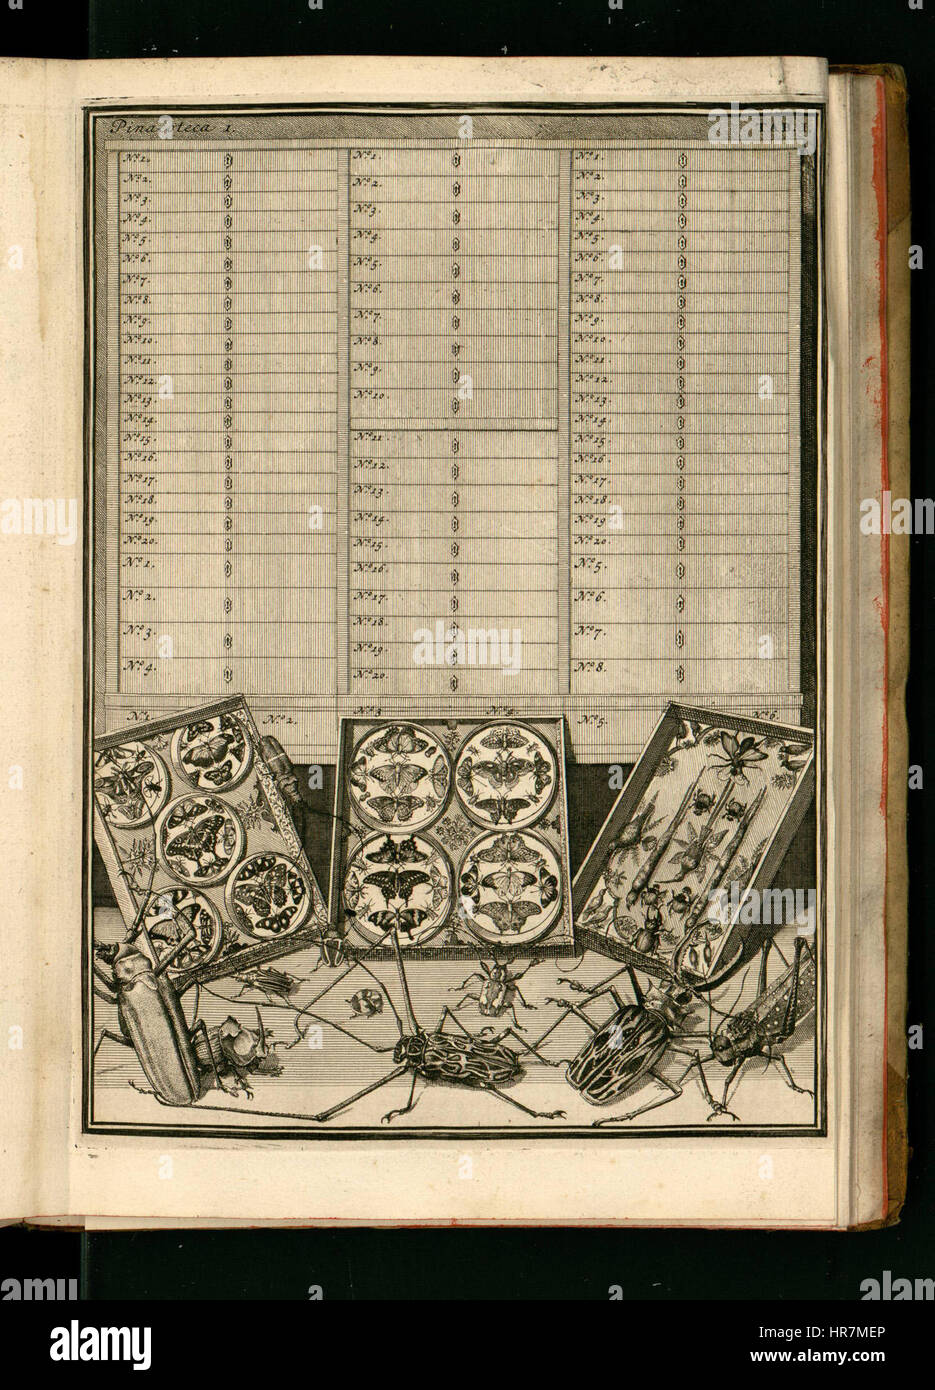 Pinacoteca 1.
TAB. I
N.º 1.
N.º 2.
N.º 3.
N.º 4.
N.º 5.
N.º 6.
N.º 7.
N.º 8.
N.º 9.
N.º 10.
N.º 11.
N.º 12.
N.º 13.
N.º 14.
N.º 15.
N.º 16.
N.º 17.
N.º 18.
N.º 19.
N.º 20.
N.º 1.
N.º 2.
N.º 3.
N.º 4.
N.º 1.
N.º 2.
N.º 3.
N.º 4.
N.º 5.
N.º 6.
N.º 7.
N.º 8.
N.º 9.
N.º 10.
N.º 11.
N.º 12.
N.º 13.
N.º 14.
N.º 15.
N.º 16.
N.º 17.
N.º 18.
N.º 19.
N.º 20.
N.º 1.
N.º 2.
N.º 3.
N.º 4.
N.º 5.
N.º 6.
N.º 7.
N.º 8.
N.º 9.
N.º 10.
N.º 11.
N.º 12.
N.º 13.
N.º 14.
N.º 15.
N.º 16.
N.º 17.
N.º 18.
N.º 19.
N.º 20.
N.º 5.
N.º 6.
N.º 7.
N.º 8.
N.º 1. N.º 2. N.º 3 N.º 4. N.º 5. N.º 6.
alamy stock photo
a alamy
HR7MEP
www.alamy.com